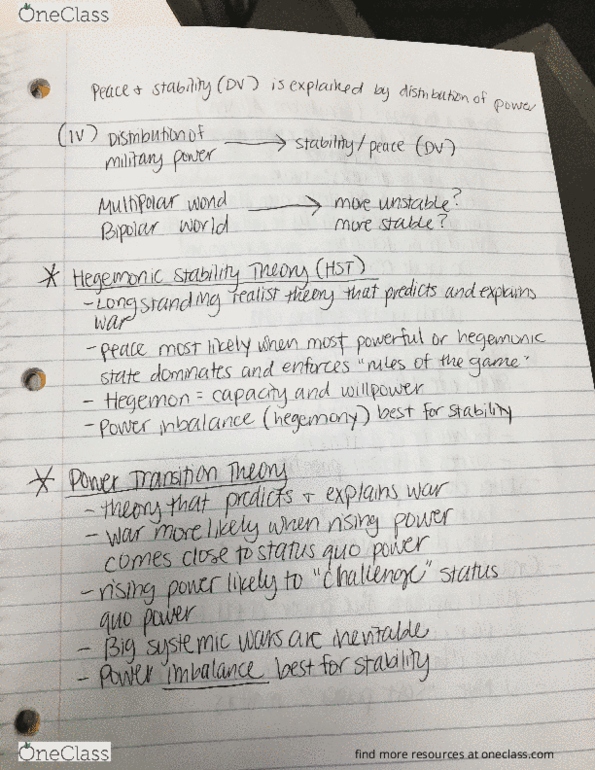 OneClass
Peace + stability (DV) is explained by distribution of power
(IV) Distribution of
military power → stability/peace (DV)
Multipolar world → more unstable?
Bipolar world more stable?
* Hegemonic Stability Theory (HST)
- Longstanding realist theory that predicts and explains
war
- peace most likely when most powerful or hegemonic
state dominates and enforces "rules of the game"
- Hegemon = capacity and willpower
- Power inbalance (hegemony) best for stability
* Power Transition Theory
- theory that predicts + explains war
- war more likely when rising power
comes close to status quo power
- rising power likely to "challenge" status
quo power
- Big systemic wars are inevitable
- Power imbalance best for stability
OneClass
find more resources at oneclass.com